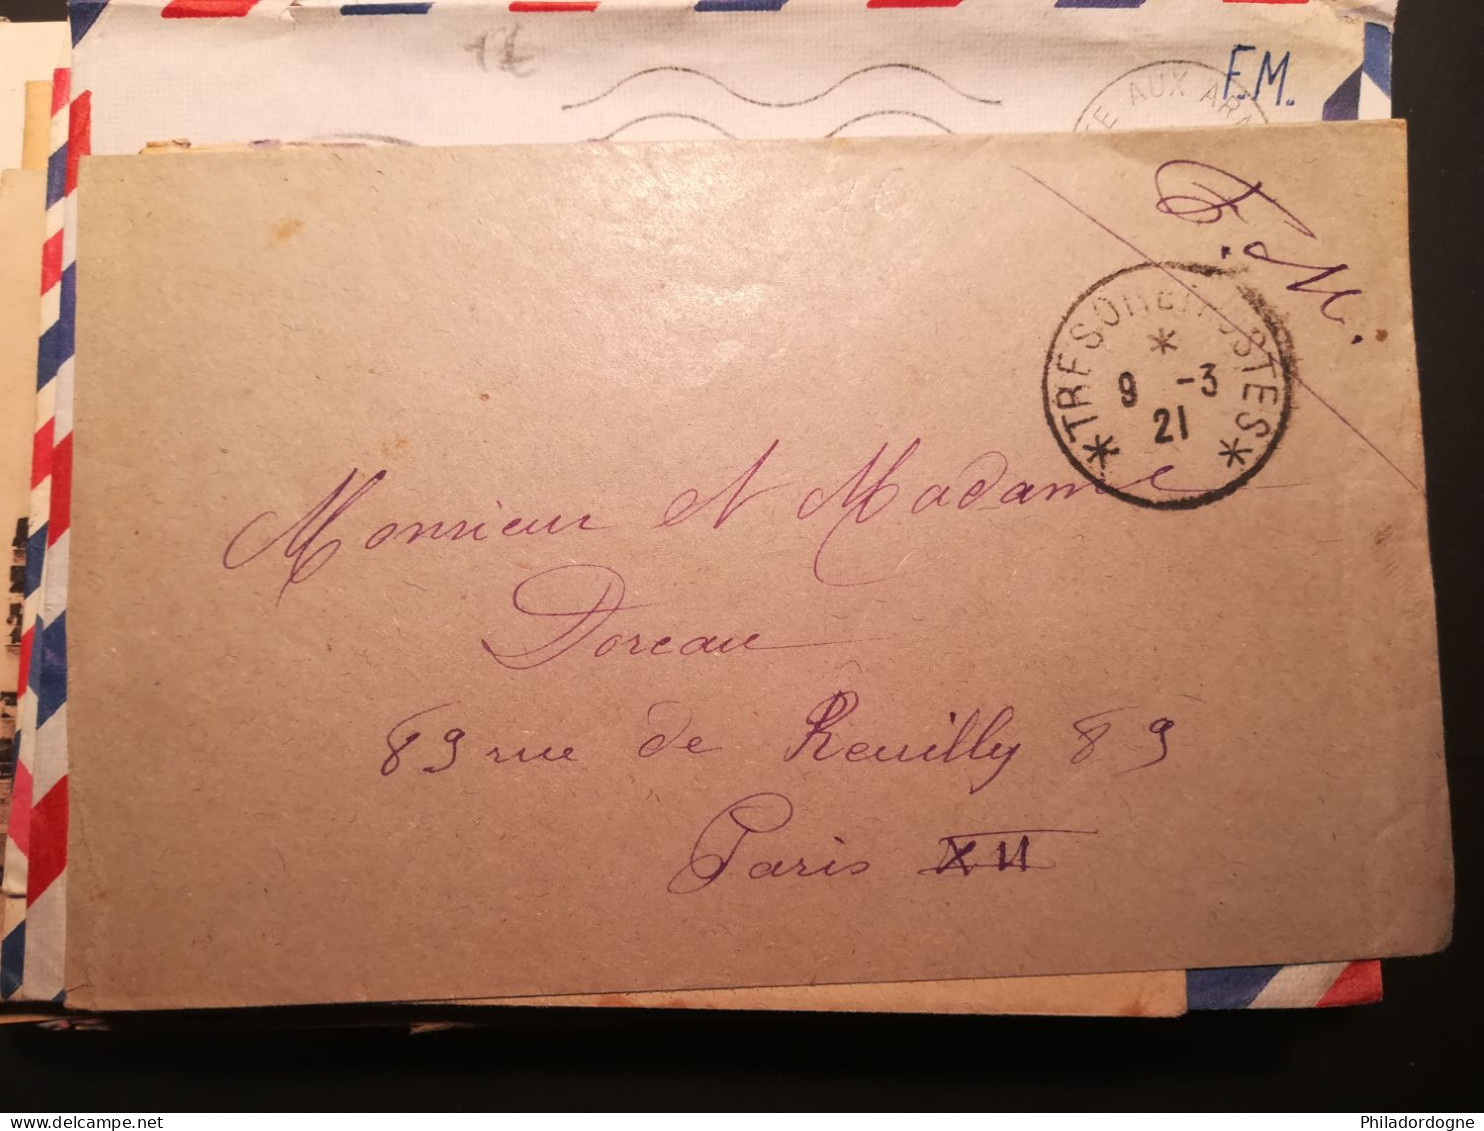 1€
F.M.
AUX
F.M.
*TRESOR ET POSTES*
*
9 -3
21
Monsieur et Madame
Doreau
89 rue de Reuilly 89
Paris XII
Philadordogne